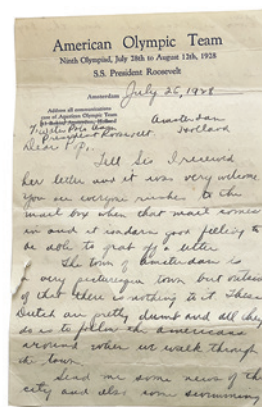 American Olympic Team
Ninth Olympiad, July 28th to August 12th, 1928
S.S. President Roosevelt
Amsterdam July 26, 1928
Address all communications
care of American Olympic Team
Amsterdam
Holland
President Roosevelt.
Dear Pop:
Tell Sis I received
her letter and it was very welcome
You see everyone rushes to the
mail box when that mail comes
in and it is a darn good feeling to
be able to grab off a letter
The town of Amsterdam is
a very picturesque town but outside
of that there is nothing to it. These
Dutch are pretty dumb and all they
do is to follow the americans
around when we walk through
the town.
Send me some news of the
city and also some swimming